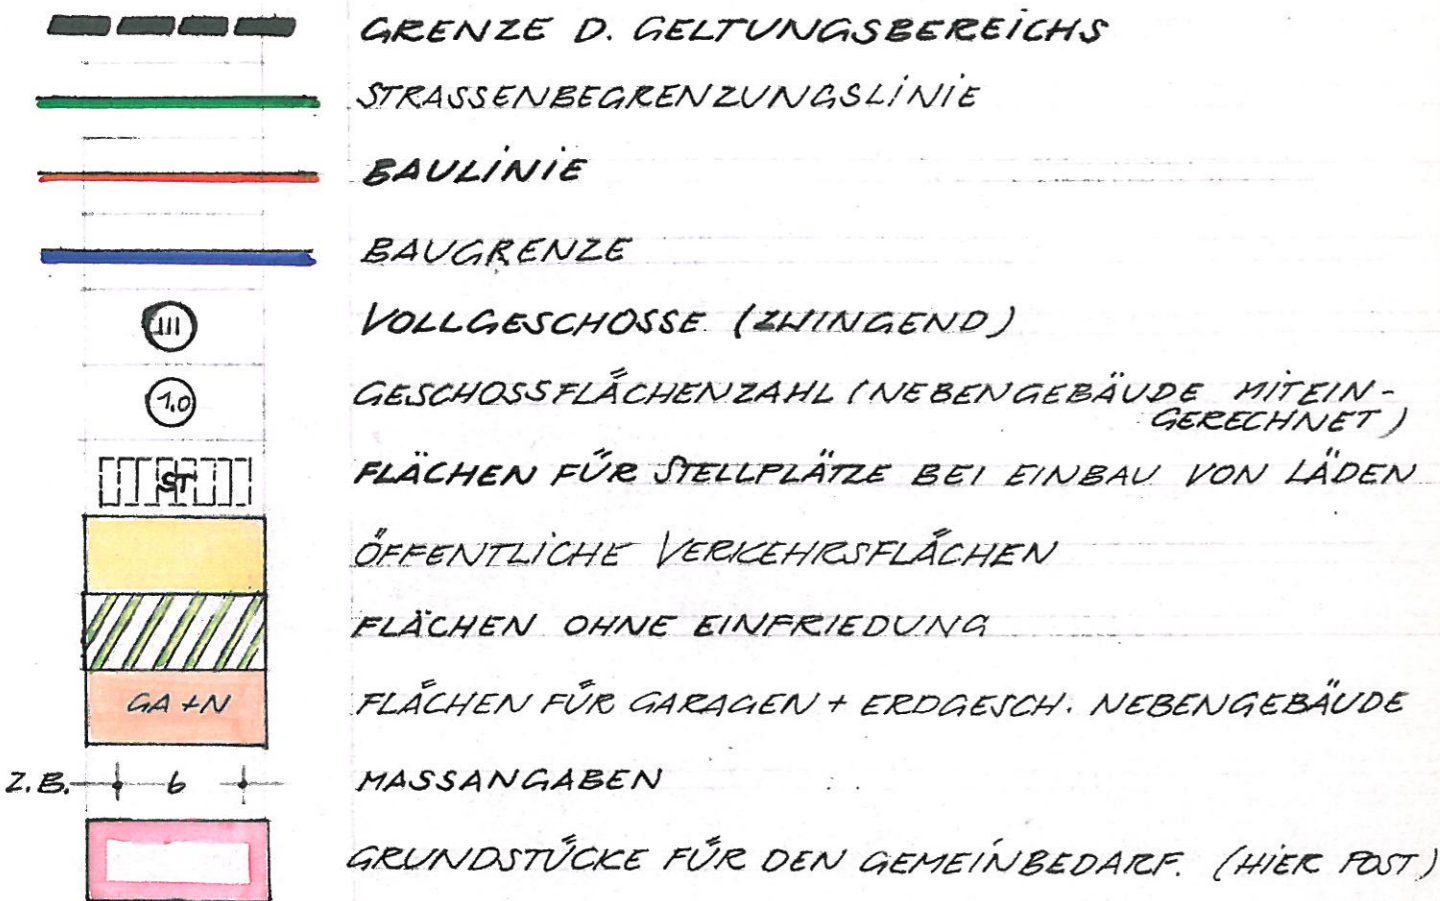 GRENZE D. GELTUNGSBEREICHS
STRASSENBEGRENZUNGSLINIE
BAULINIE
BAUGRENZE
III VOLLGESCHOSSE (ZWINGEND)
1,0 GESCHOSSFLÄCHENZAHL (NEBENGEBÄUDE MITEIN-
GERECHNET)
ST FLÄCHEN FÜR STELLPLÄTZE BEI EINBAU VON LÄDEN
ÖFFENTLICHE VERKEHRSFLÄCHEN
FLÄCHEN OHNE EINFRIEDUNG
GA+N FLÄCHEN FÜR GARAGEN + ERDGESCH. NEBENGEBÄUDE
Z.B. 6 MASSANGABEN
GRUNDSTÜCKE FÜR DEN GEMEINBEDARF. (HIER POST)